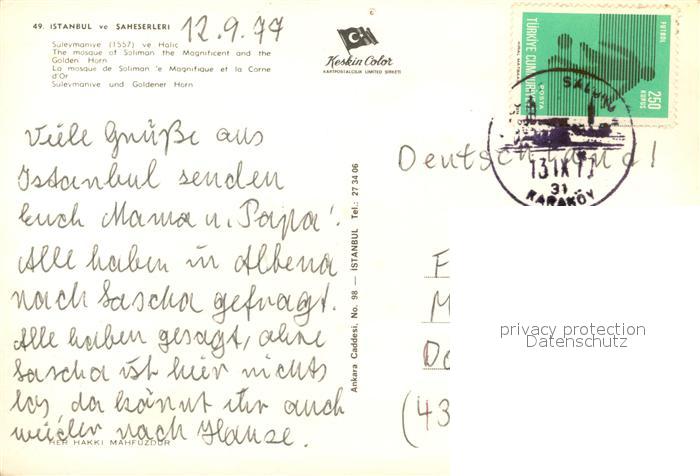 49. İSTANBUL ve ŞAHESERLERİ
12.9.77
Süleymaniye (1557) ve Haliç
The mosque of Soliman the Magnificent and the
Golden Horn
La mosque de Soliman le Magnifique et la Corne
d'Or
Suleymaniye und Goldener Horn
Keskin Color
KARTPOSTALCILIK LIMITED ŞİRKETİ
FUTBOL
TÜRKİYE CUMHURİYETİ
POSTA
250
KURUŞ
13 IX 77
31
KARAKÖY
Viele Grüße aus
Istanbul senden
Euch Mama u. Papa!
Alle haben in Albena
nach Sascha gefragt.
Alle haben gesagt, ohne
Sascha ist hier nichts
los da könnt ihr auch
wieder nach Hause.
HER HAKKI MAHFUZDUR
Ankara Caddesi, No. 98 — İSTANBUL Tel.: 27 34 06
Deutschland
F
M
Do
(43
privacy protection
Datenschutz